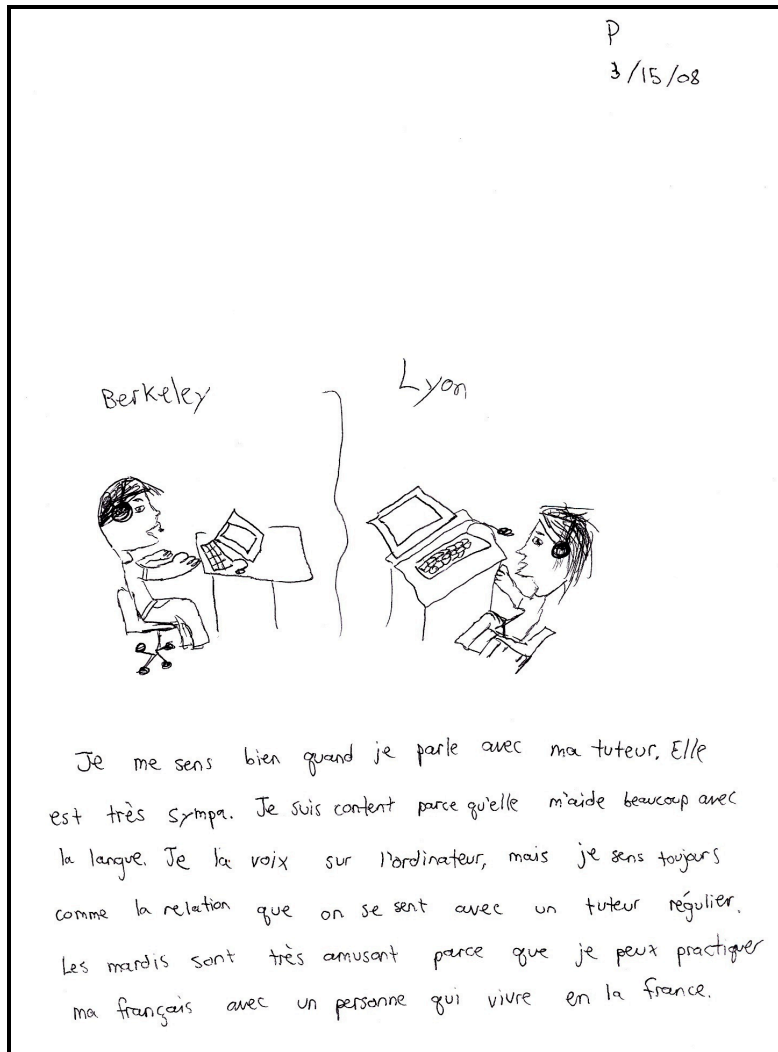 P
3/15/08
Berkeley
Lyon
Je me sens bien quand je parle avec ma tuteur. Elle
est très sympa. Je suis content parce qu'elle m'aide beaucoup avec
la langue. Je la voix sur l'ordinateur, mais je sens toujors
comme la relation que on se sent avec un tuteur régulier.
Les mardis sont très amusant parce que je peux practiquer
ma français avec un personne qui vivre en la france.